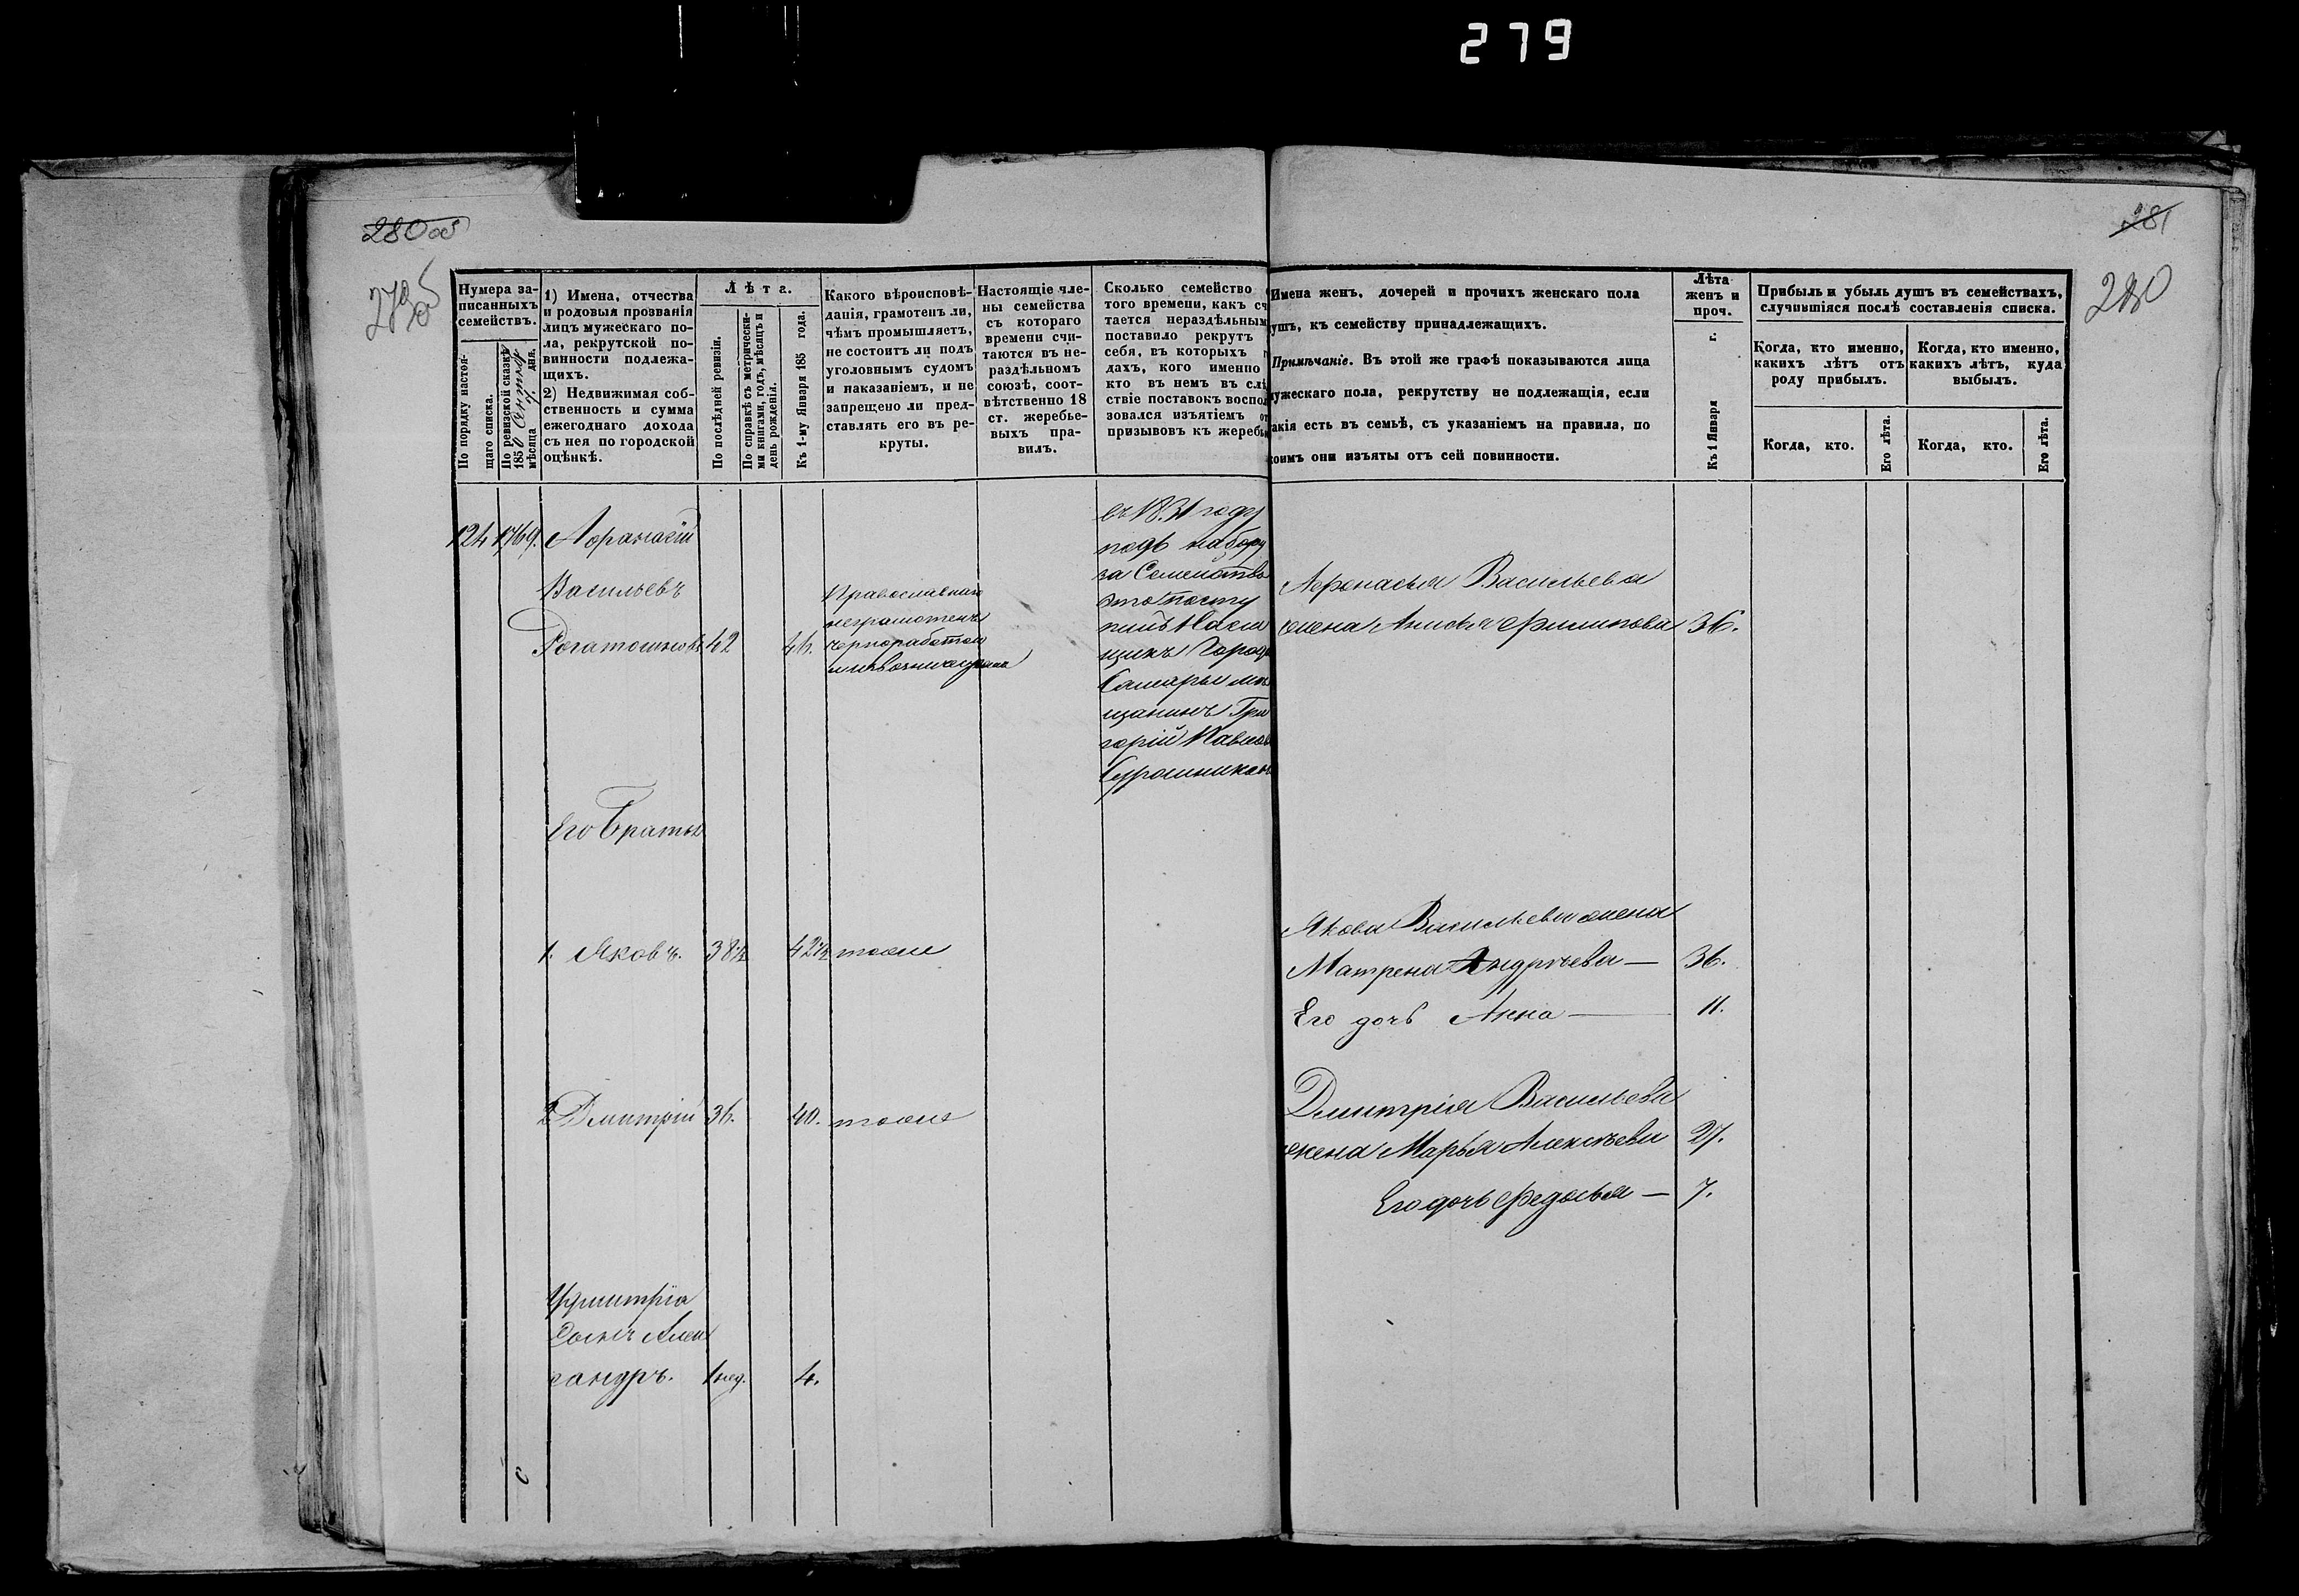 279
280 об
279 об
Нумера за-
писанныхъ
семействъ.
По порядку настоя-
щаго списка.
По ревизской сказкѣ
1850 Сентяб
мѣсяца 7 дня.
1) Имена, отчества
и родовыя прозванія
лицъ мужескаго по-
ла, рекрутской по-
винности подлежа-
щихъ.
2) Недвижимая соб-
ственность и сумма
ежегоднаго дохода
съ нея по городской
оцѣнкѣ.
Лѣта.
По послѣдней ревизіи.
По справкѣ съ метрически-
ми книгами, годъ, мѣсяцъ и
день рожденія.
Къ 1-му Января 185 года.
Какого вѣроисповѣ-
данія, грамотенъ ли,
чѣмъ промышляетъ,
не состоитъ ли подъ
уголовнымъ судомъ
и наказаніемъ, и не
запрещено ли пред-
ставлять его въ ре-
круты.
Настоящіе чле-
ны семейства
съ котораго
времени счи-
таются въ не-
раздѣльномъ
союзѣ, соот-
вѣтственно 18
ст. жеребье-
выхъ пра-
вилъ.
Сколько семейство
того времени, какъ сч
тается нераздѣльнымъ
поставило рекрутъ
себя, въ которыхъ г
дахъ, кого именно
кто въ немъ въ слѣ
ствіе поставокъ воспол
зовался изъятіемъ от
призывовъ къ жеребь
124 1769. Афранасій
Васильевъ
Рогатошновъ 42 46.
Православнаго
неграмотенъ
черноработою
и извозничествомъ
въ 1831 году
подъ наборъ
за Семейство
это посту
пилъ Наем
щикъ Города
Самары мѣ
щанинъ Гри
горій Павлов
Его Братья
1. Яковъ. 38 1/2 42 1/2 тоже
2 Дмитрій 36. 40. тоже
У Дмитрія
Сынъ Алек
сандръ. 1 нед. 4.
281
280
Имена женъ, дочерей и прочихъ женскаго пола
душъ, къ семейству принадлежащихъ.
Примѣчаніе. Въ этой же графѣ показываются лица
мужескаго пола, рекрутству не подлежащія, если
такія есть въ семьѣ, съ указаніемъ на правила, по
коимъ они изъяты отъ сей повинности.
Лѣта
женъ и
проч.
Къ 1 Января г.
Прибыль и убыль душъ въ семействахъ,
случившіяся послѣ составленія списка.
Когда, кто именно,
какихъ лѣтъ отъ
роду прибылъ.
Когда, кто именно,
какихъ лѣтъ, куда
выбылъ.
Когда, кто.
Его лѣта.
Когда, кто.
Его лѣта.
Афонасья Васильева
жена Анисья Филипова 36.
Якова Васильева жена
Матрена Андреева — 36.
Его дочь Анна — 11.
Дмитрія Васильева
жена Марья Алексѣева 27.
Его дочь Федосья — 7.